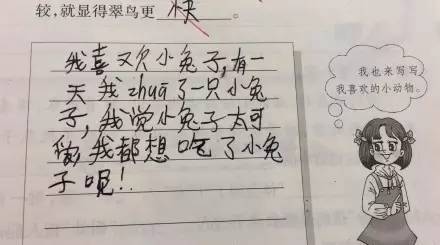 较,就显得翠鸟更快。
我喜欢小兔子,有一
天我zhuā了一只小兔
子,我觉小兔子太可
爱,我都想吃了小兔
子呢!
我也来写写
我喜欢的小动物。